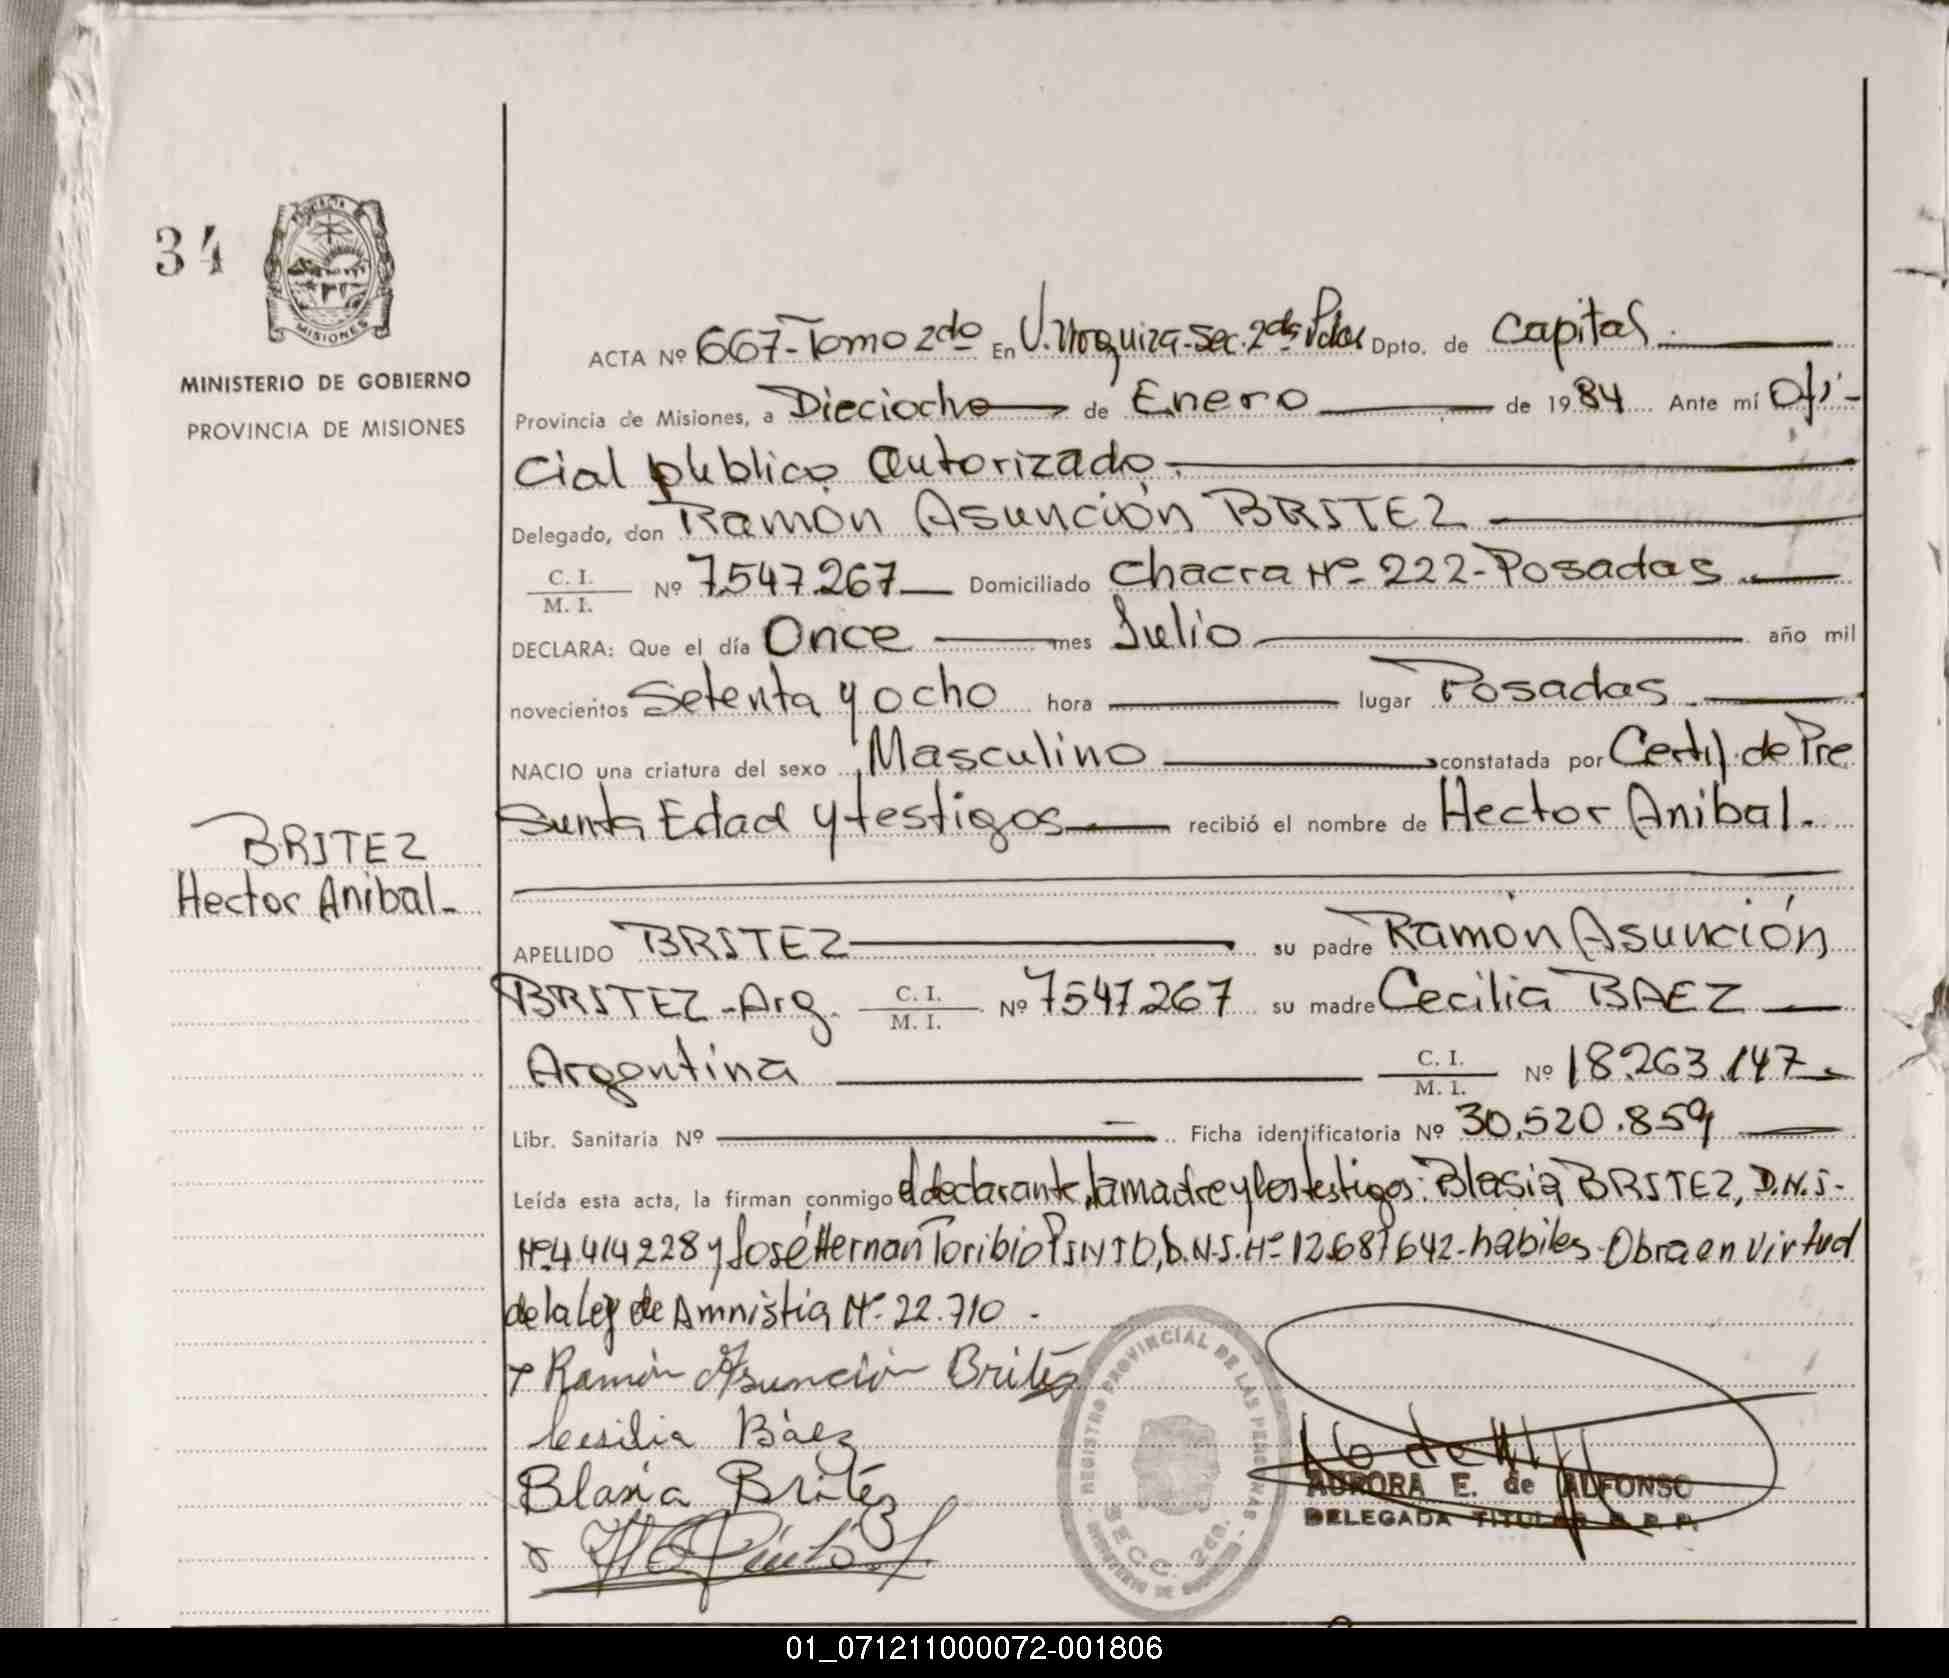 34
PROVINCIA
MISIONES
MINISTERIO DE GOBIERNO
PROVINCIA DE MISIONES
BRITEZ
Hector Anibal.-
ACTA Nº 667-Tomo 2do En V. Urquiza-Sec. 2da Pdas Dpto. de Capital
Provincia de Misiones, a Dieciocho de Enero de 1984 Ante mí Ofi-
cial público autorizado.
Delegado, don Ramón Asunción BRITEZ
C. I. / M. I. Nº 7.547.267 Domiciliado Chacra Nº 222-Posadas.
DECLARA: Que el día Once mes Julio año mil
novecientos Setenta y ocho hora lugar Posadas.
NACIO una criatura del sexo Masculino constatada por Certif. de Pre
sunta Edad y testigos recibió el nombre de Hector Anibal.
APELLIDO BRITEZ su padre Ramón Asunción
BRITEZ-Arg. C. I. / M. I. Nº 7547.267 su madre Cecilia BAEZ
Argentina C. I. / M. I. Nº 18.263.147
Libr. Sanitaria Nº Ficha identificatoria Nº 30.520.859
Leída esta acta, la firman conmigo el declarante, la madre y los testigos: Blasia BRITEZ, D.N.I.-
Nº 4.414.228 y José Hernan Toribio PINTO, D.N.I. Nº 12.687.642-habiles. Obra en virtud
de la Ley de Amnistia Nº 22.710.-
Ramón Asunción Britéz
Cesilia Báez
Blasia Britéz
REGISTRO PROVINCIAL DE LAS PERSONAS
SECC. 2da.
MINISTERIO DE GOBIERNO
AURORA E. de ALFONSO
DELEGADA TITULAR R. P. P.
01_071211000072-001806